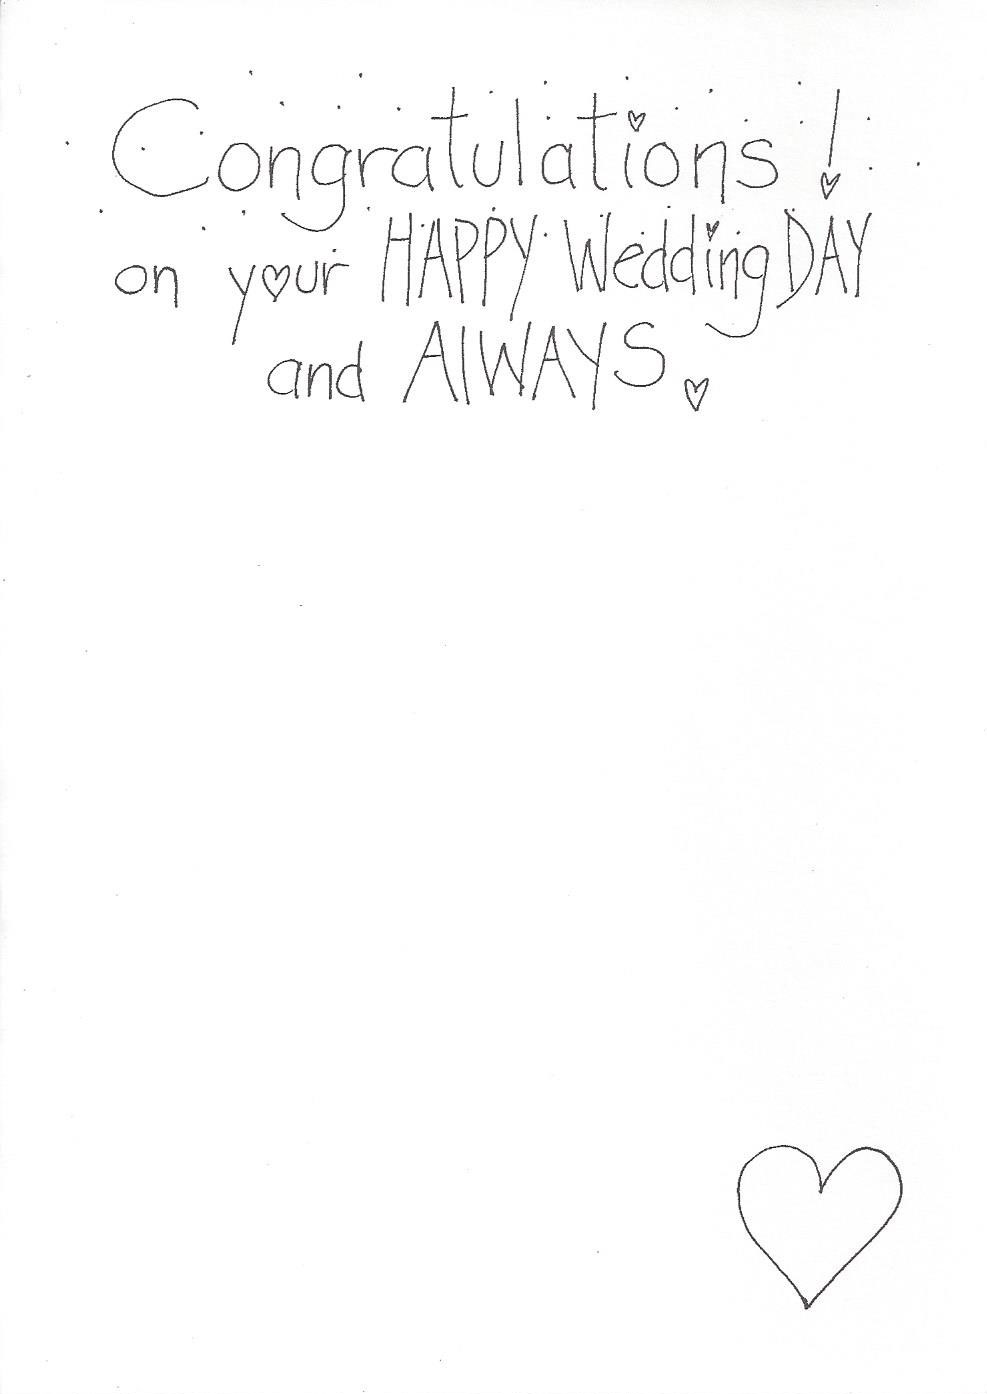 Congratulations!
on your HAPPY Wedding DAY
and AlWAYS